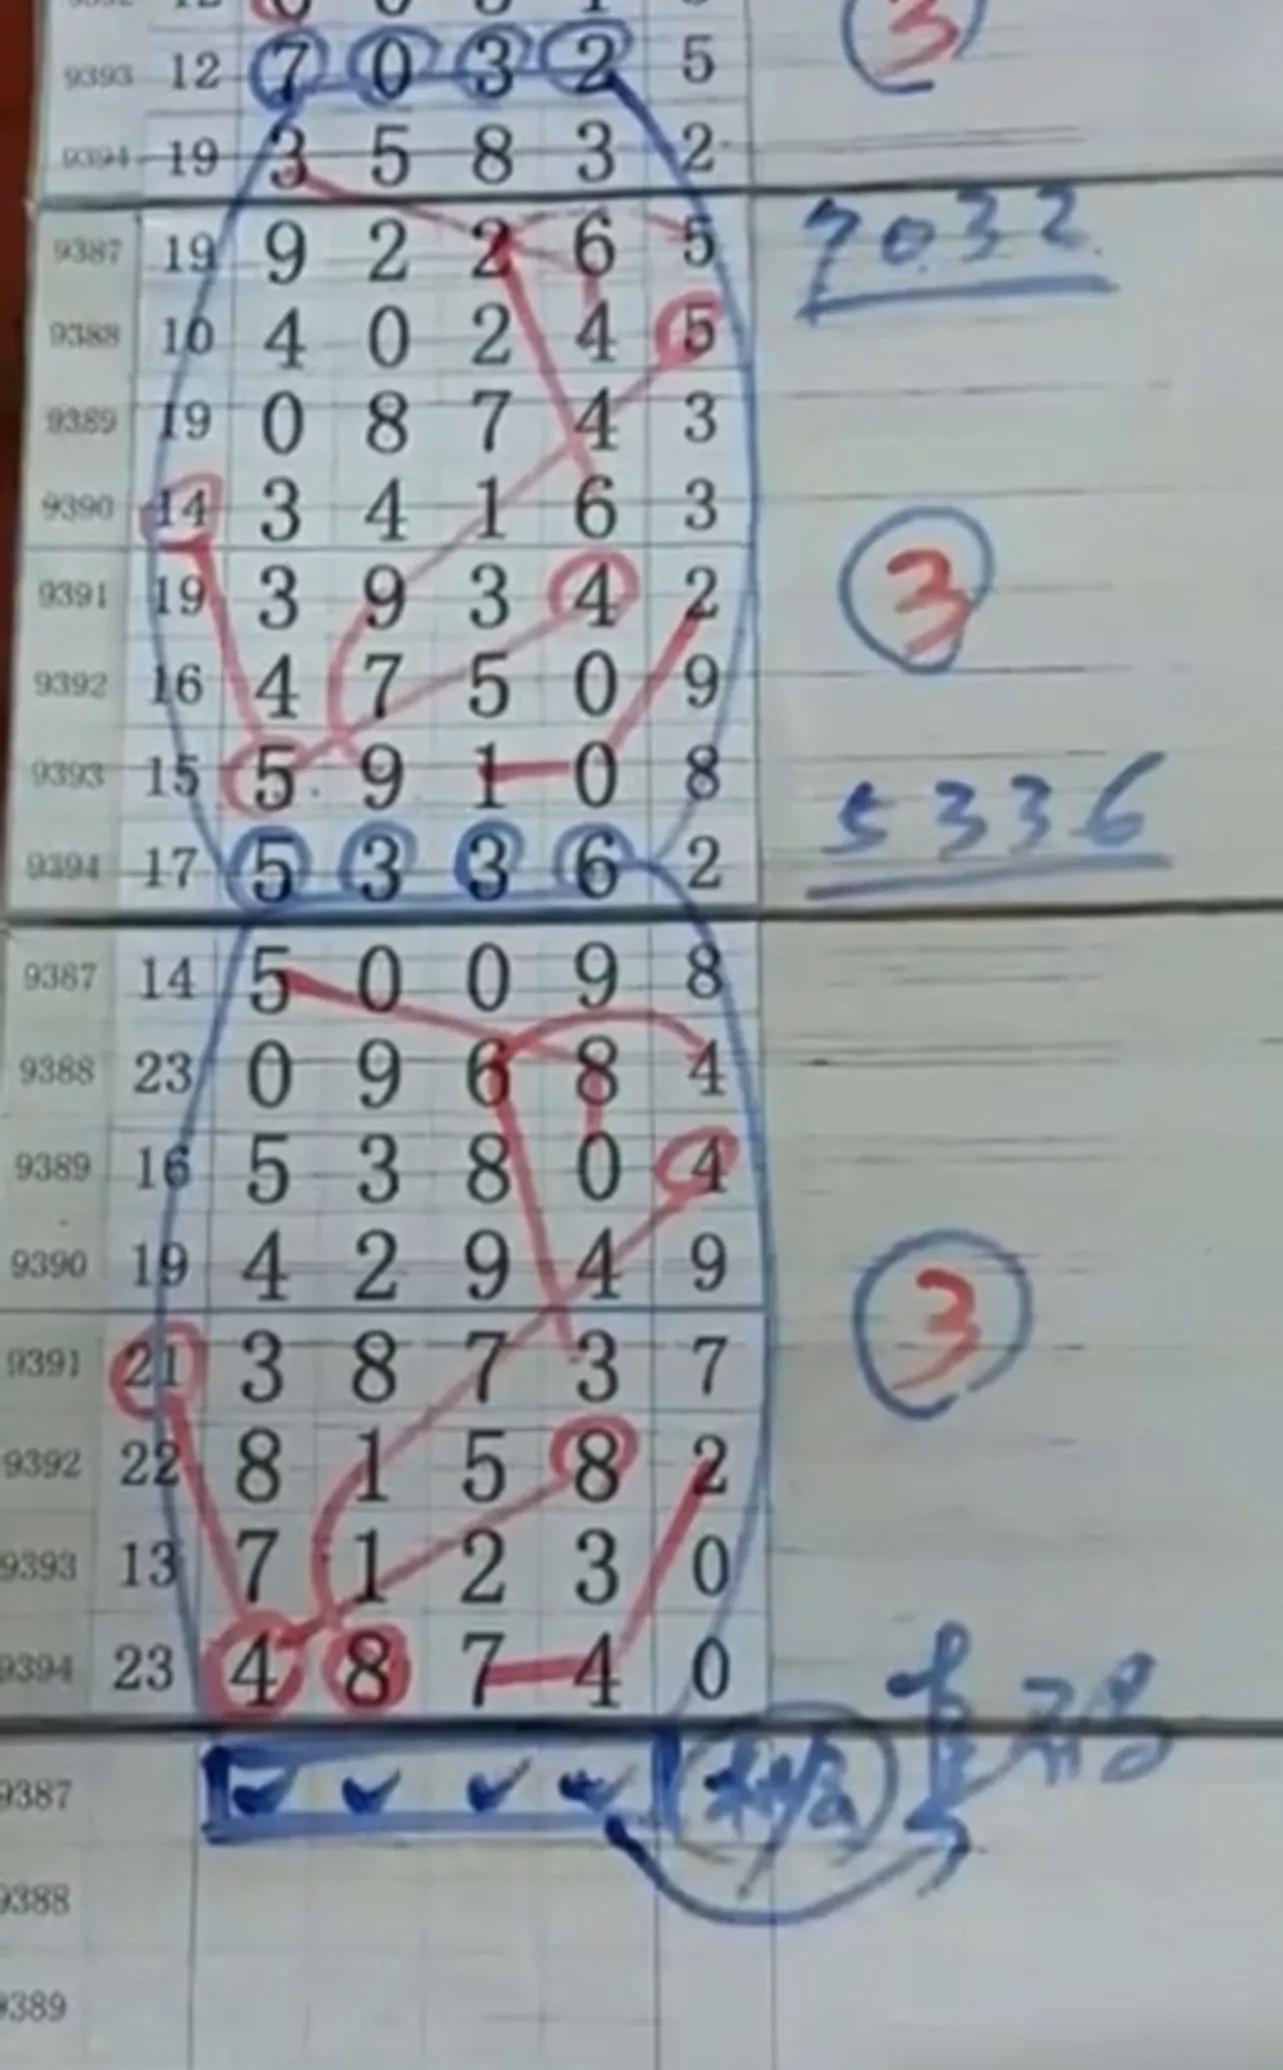 9393 12 7 0 3 2 5
3
9394 19 3 5 8 3 2
9387 19 9 2 2 6 5 7032
9388 10 4 0 2 4 5
9389 19 0 8 7 4 3
9390 14 3 4 1 6 3
9391 19 3 9 3 4 2 3
9392 16 4 7 5 0 9
9393 15 5 9 1 0 8 5336
9394 17 5 3 3 6 2
9387 14 5 0 0 9 8
9388 23 0 9 6 8 4
9389 16 5 3 8 0 4
9390 19 4 2 9 4 9
9391 21 3 8 7 3 7 3
9392 22 8 1 5 8 2
9393 13 7 1 2 3 0
9394 23 4 8 7 4 0
9387
9388
9389